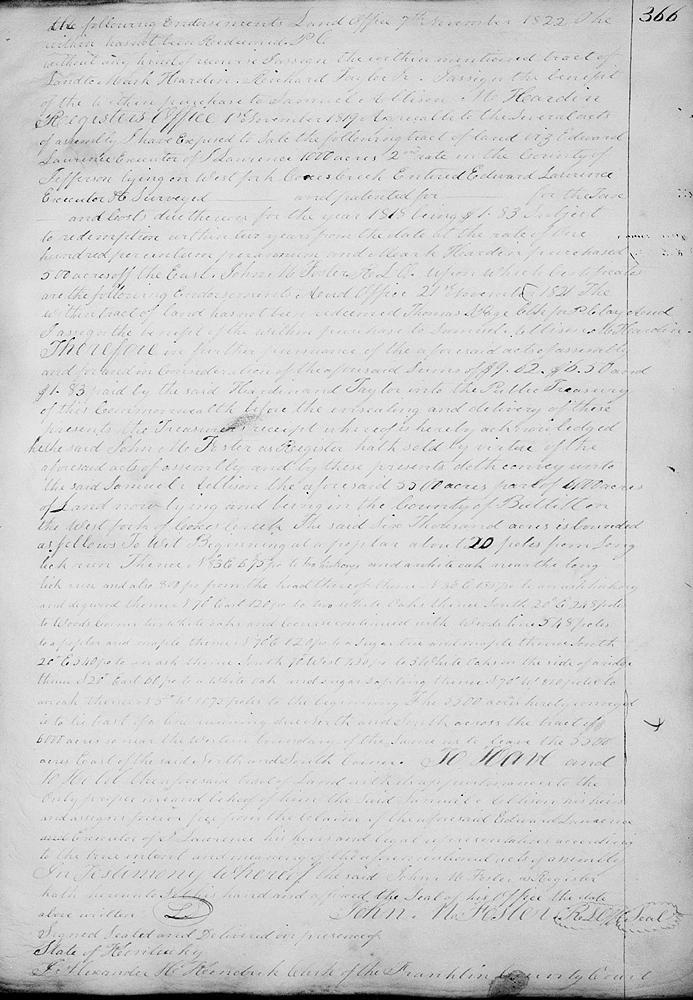 366
the following Endorsements Land Office 7th November 1822 The
within has not been Redeemed P.C.
without any kind of recourse I assign the within mentioned tract of
Land to Mark Hardin. Richard Taylor Jr. I assign the benefit
of the within purchase to Samuel Allison. M. Hardin
Registers Office 1st November 1819 Agreeable to the Several acts
of assembly I have Exposed to Sale the following tract of land viz Edward
Lawrence Executor of S Lawrence 1000 acres 2nd rate in the County of
Jefferson lying on West fork Coxes Creek Entered Edward Lawrence
Executor &c Surveyed and patented for for the Tax
and Costs due thereon for the year 1818 being $1.83 Subject
to redemption within two years from the date at the rate of one
hundred per centum per annum and Mark Hardin purchased
500 acres off the East. John M. Foster R.L.O. upon which Certificates
are the following Endorsements Land Office 21st November 1821 The
within tract of land has not been redeemed Thomas Page Clk for P. Clay Aud
I assign the benefit of the within purchase to Samuel Allison M. Hardin.
Therefore in further pursuance of the aforesaid acts of assembly
and for and in Consideration of the aforesaid Sums of $9.62. $5.50 and
$1.83 paid by the said Hardin and Taylor into the Public Treasury
of this Commonwealth before the ensealing and delivery of these
presents the Treasurers receipt whereof is hereby acknowledged
he the said John M. Foster as Register hath sold by virtue of the
aforesaid acts of assembly and by these presents doth convey unto
the said Samuel Allison the aforesaid 5500 acres part of 6000 acres
of Land now lying and being in the County of Bullitt on
the West fork of Coxes Creek The said Six Thousand acres is bounded
as follows To Wit Beginning at a poplar about 120 poles from Long
lick run Thence N 83 E 675 po to two hickorys and a white oak near the long
lick run and also 800 po from the head thereof thence N 83 E to an ash hickory
and dogwood thence N 70 East 120 po to two White Oaks thence South 20 E 248 poles
to Woods Corner two White oaks and continued with Woods line 548 poles
to a poplar and maple thence N 70 E 120 po to a Sugar tree and maple thence South
20 E 240 po to an ash thence South 70 West po to 3 White Oaks on the side of a ridge
thence S 20 East 60 po to a White Oak and sugar Sapling thence S 70 W poles to
an oak thence N 5 W 1075 poles to the beginning. The 5500 acres hereby conveyed
is to lie East of a line running due North and South across the tract of
6000 acres so near the Western boundary of the Same as to leave the 5500
acres East of the said North and South Corner. To Have and
to Hold the aforesaid tract of Land with its appurtenances to the
Only proper use and behoof of him the Said Samuel Allison his heirs
and assigns forever free from the Claim of the aforesaid Edward Lawrence
and Executor of S Lawrence his heirs and legal representatives according
to the true intent and meaning of the aforementioned acts of assembly
In Testimony Whereof the said John M Foster as Register
hath hereunto Set his hand and affixed the Seal of his Office the date
above written. John. M. Foster R.L.O. Seal
Signed Sealed and Delivered in presence of
State of Kentucky
I Alexander H. Rennick Clerk of the Franklin County Court